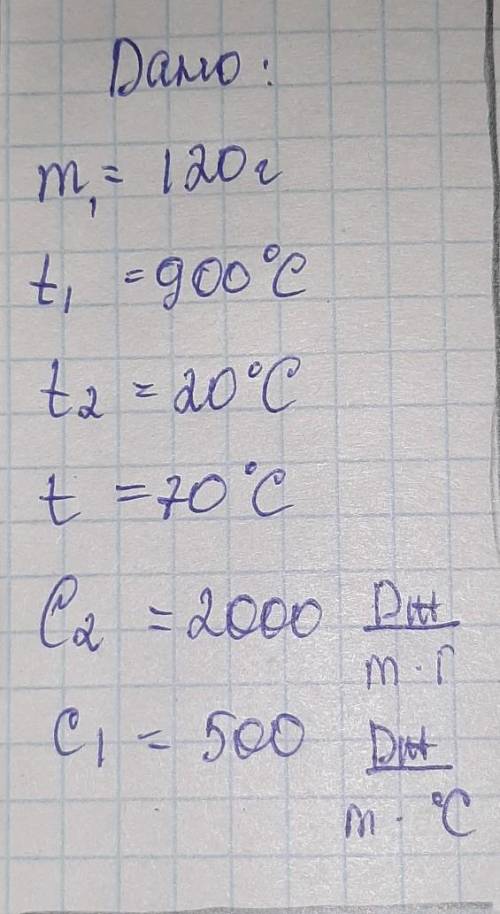 Дано:
m₁ = 120г
t₁ = 900°C
t₂ = 20°C
t = 70°C
C₂ = 2000 Дж/m·Г
C₁ = 500 Дж/m·°C